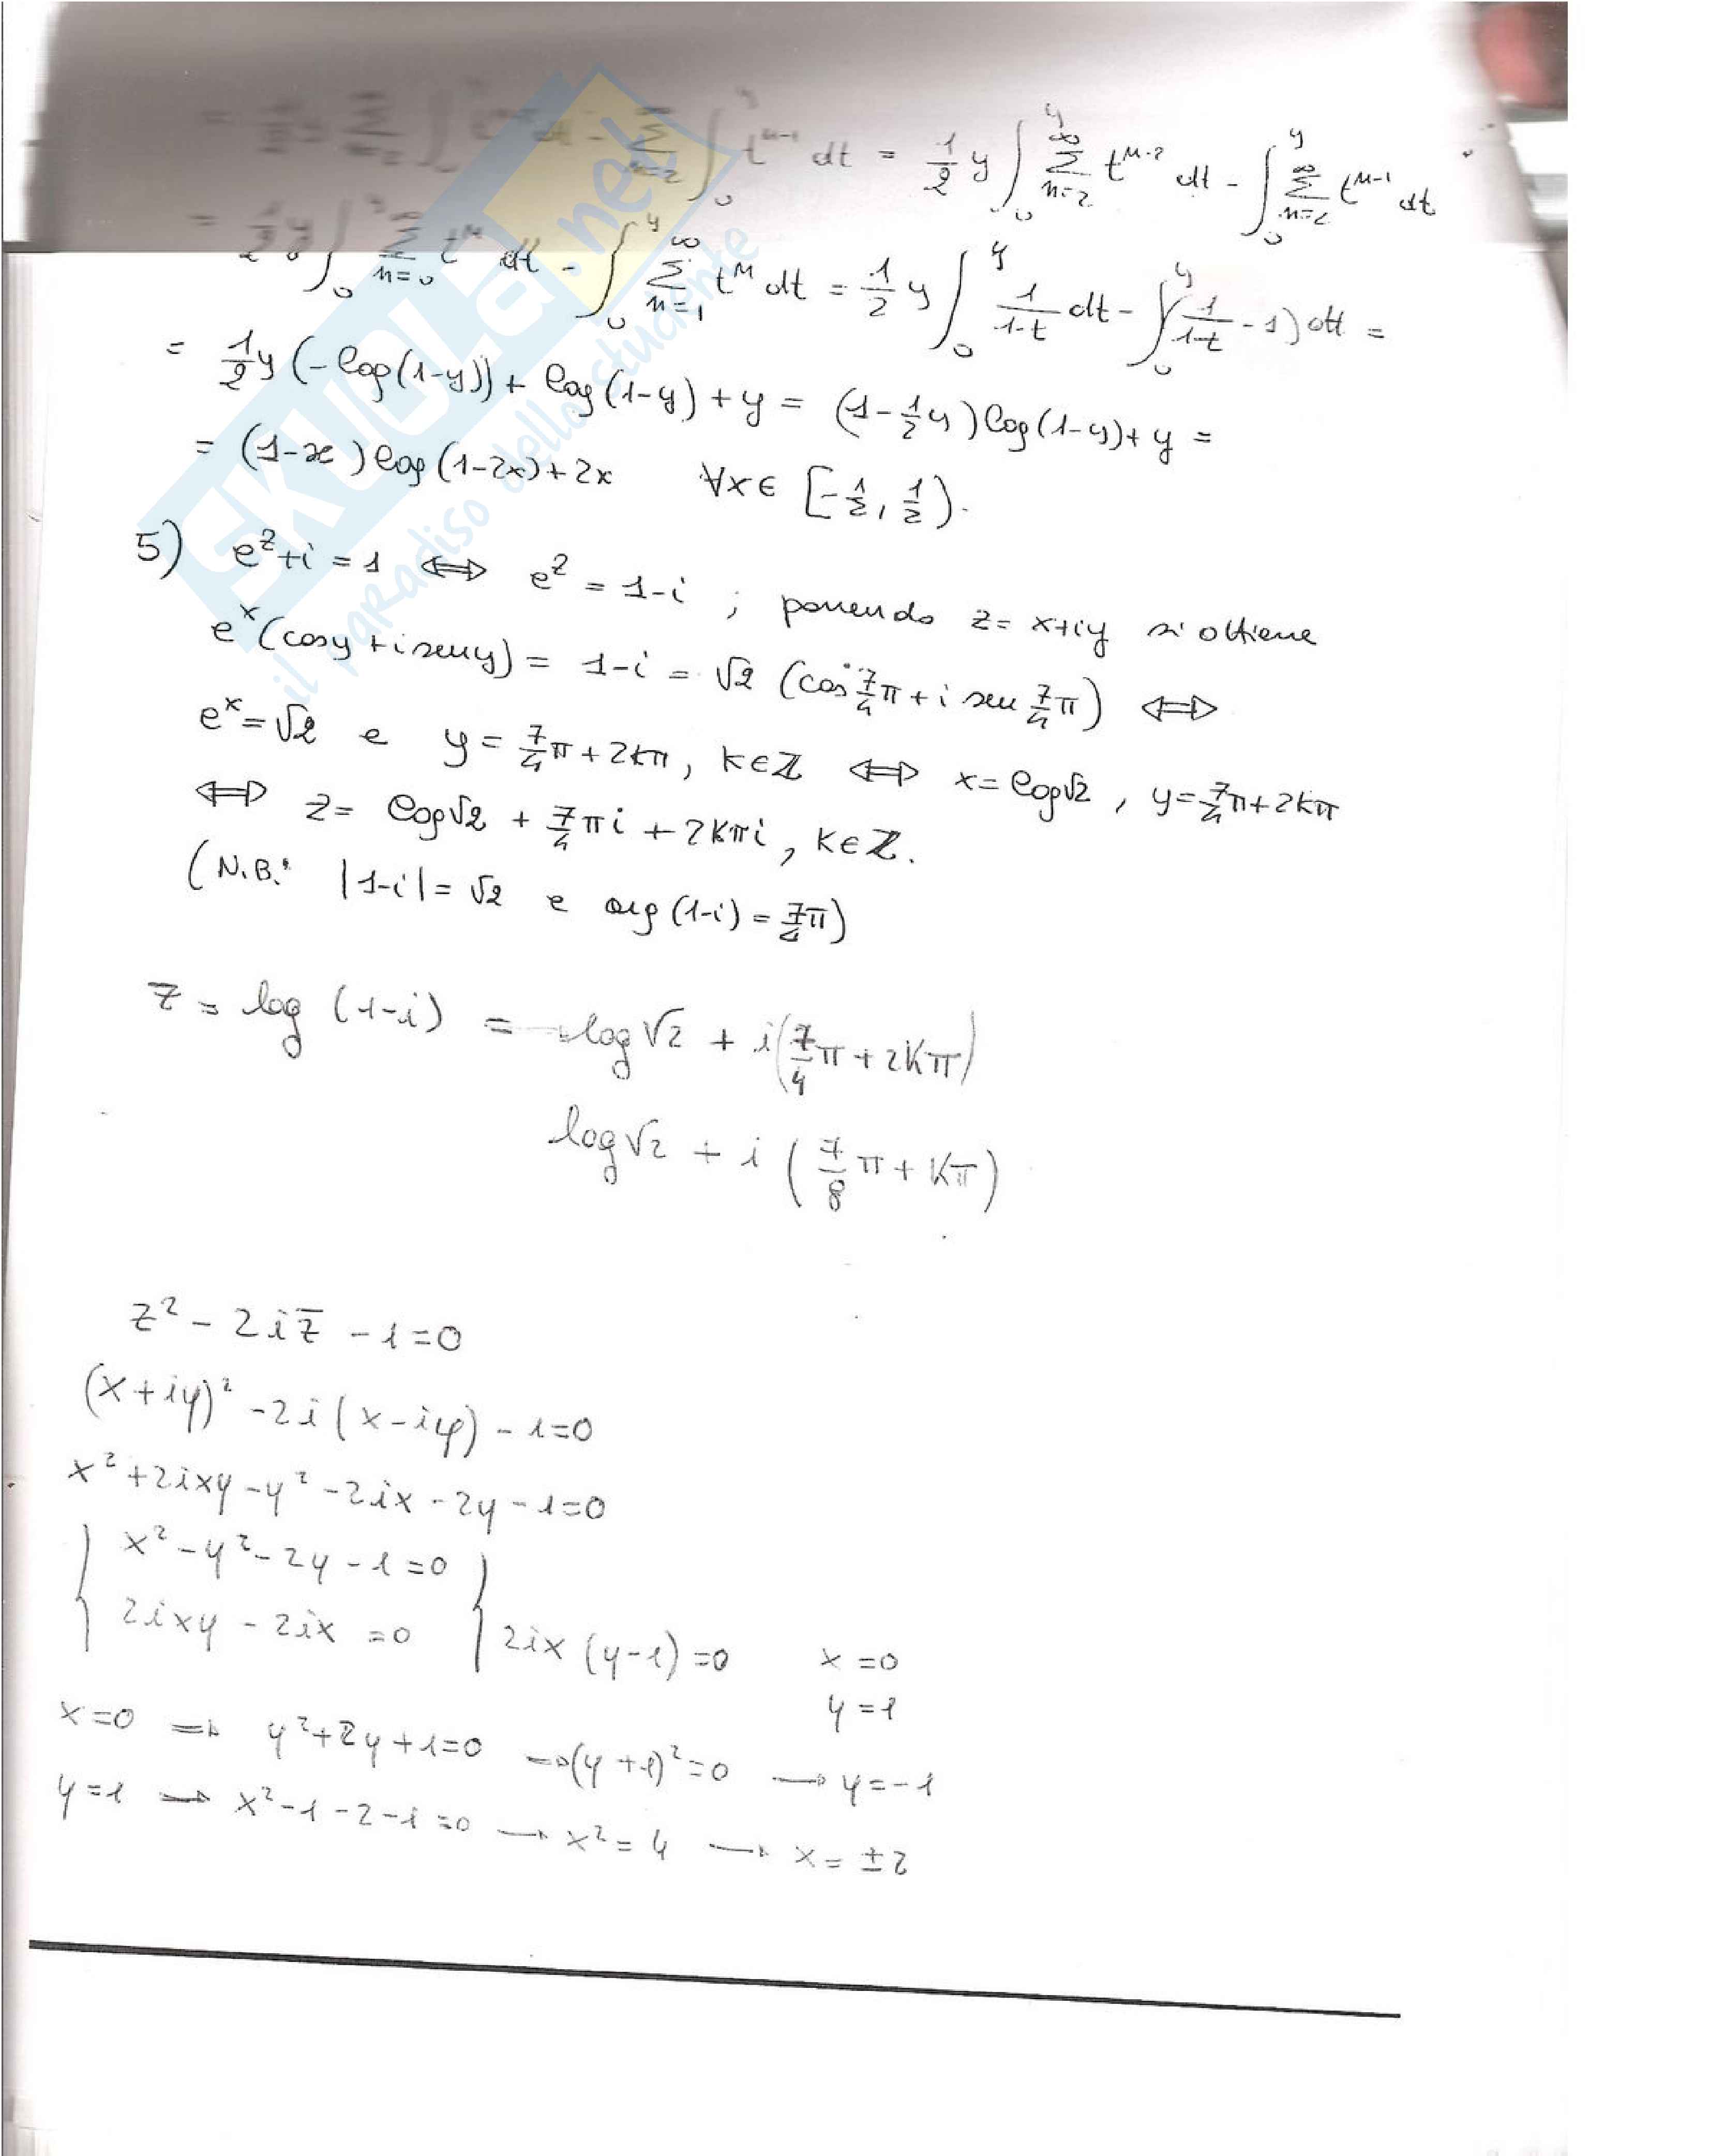 ∫_0^y t^{n-1} dt = 1/2 y ∫_0^y ∑_{n=2}^∞ t^{n-2} dt - ∫_0^y ∑_{n=2}^∞ t^{n-1} dt
= 1/2 y ∫_0 ∑_{n=0}^∞ t^n dt - ∫_0^y ∑_{n=1}^∞ t^n dt = 1/2 y ∫_0^y 1/(1-t) dt - ∫_0^y (1/(1-t) - 1) dt =
= 1/2 y (-log(1-y)) + log(1-y) + y = (1 - 1/2 y) log(1-y) + y =
= (1-x) log(1-2x) + 2x ∀x ∈ [-1/2, 1/2).
5) e^z + i = 1 ⟺ e^z = 1-i ; ponendo z = x+iy si ottiene
e^x (cosy + i seny) = 1-i = √2 (cos 7/4 π + i sen 7/4 π) ⟺
e^x = √2 e y = 7/4 π + 2kπ, k∈ℤ ⟺ x = log√2, y = 7/4 π + 2kπ
⟺ z = log√2 + 7/4 πi + 2kπi, k∈ℤ.
(N.B.: |1-i| = √2 e arg(1-i) = 7/4 π)
z = log (1-i) = log √2 + i(7/4 π + 2kπ)
log √2 + i (7/8 π + kπ)
z² - 2i z̄ - 1 = 0
(x+iy)² - 2i(x-iy) - 1 = 0
x² + 2ixy - y² - 2ix - 2y - 1 = 0
{ x² - y² - 2y - 1 = 0 {
2ixy - 2ix = 0 2ix (y-1) = 0 x = 0
y = 1
x = 0 ⇒ y² + 2y + 1 = 0 → (y+1)² = 0 → y = -1
y = 1 → x² - 1 - 2 - 1 = 0 → x² = 4 → x = ±2
SKUOLA.net
il paradiso dello studente